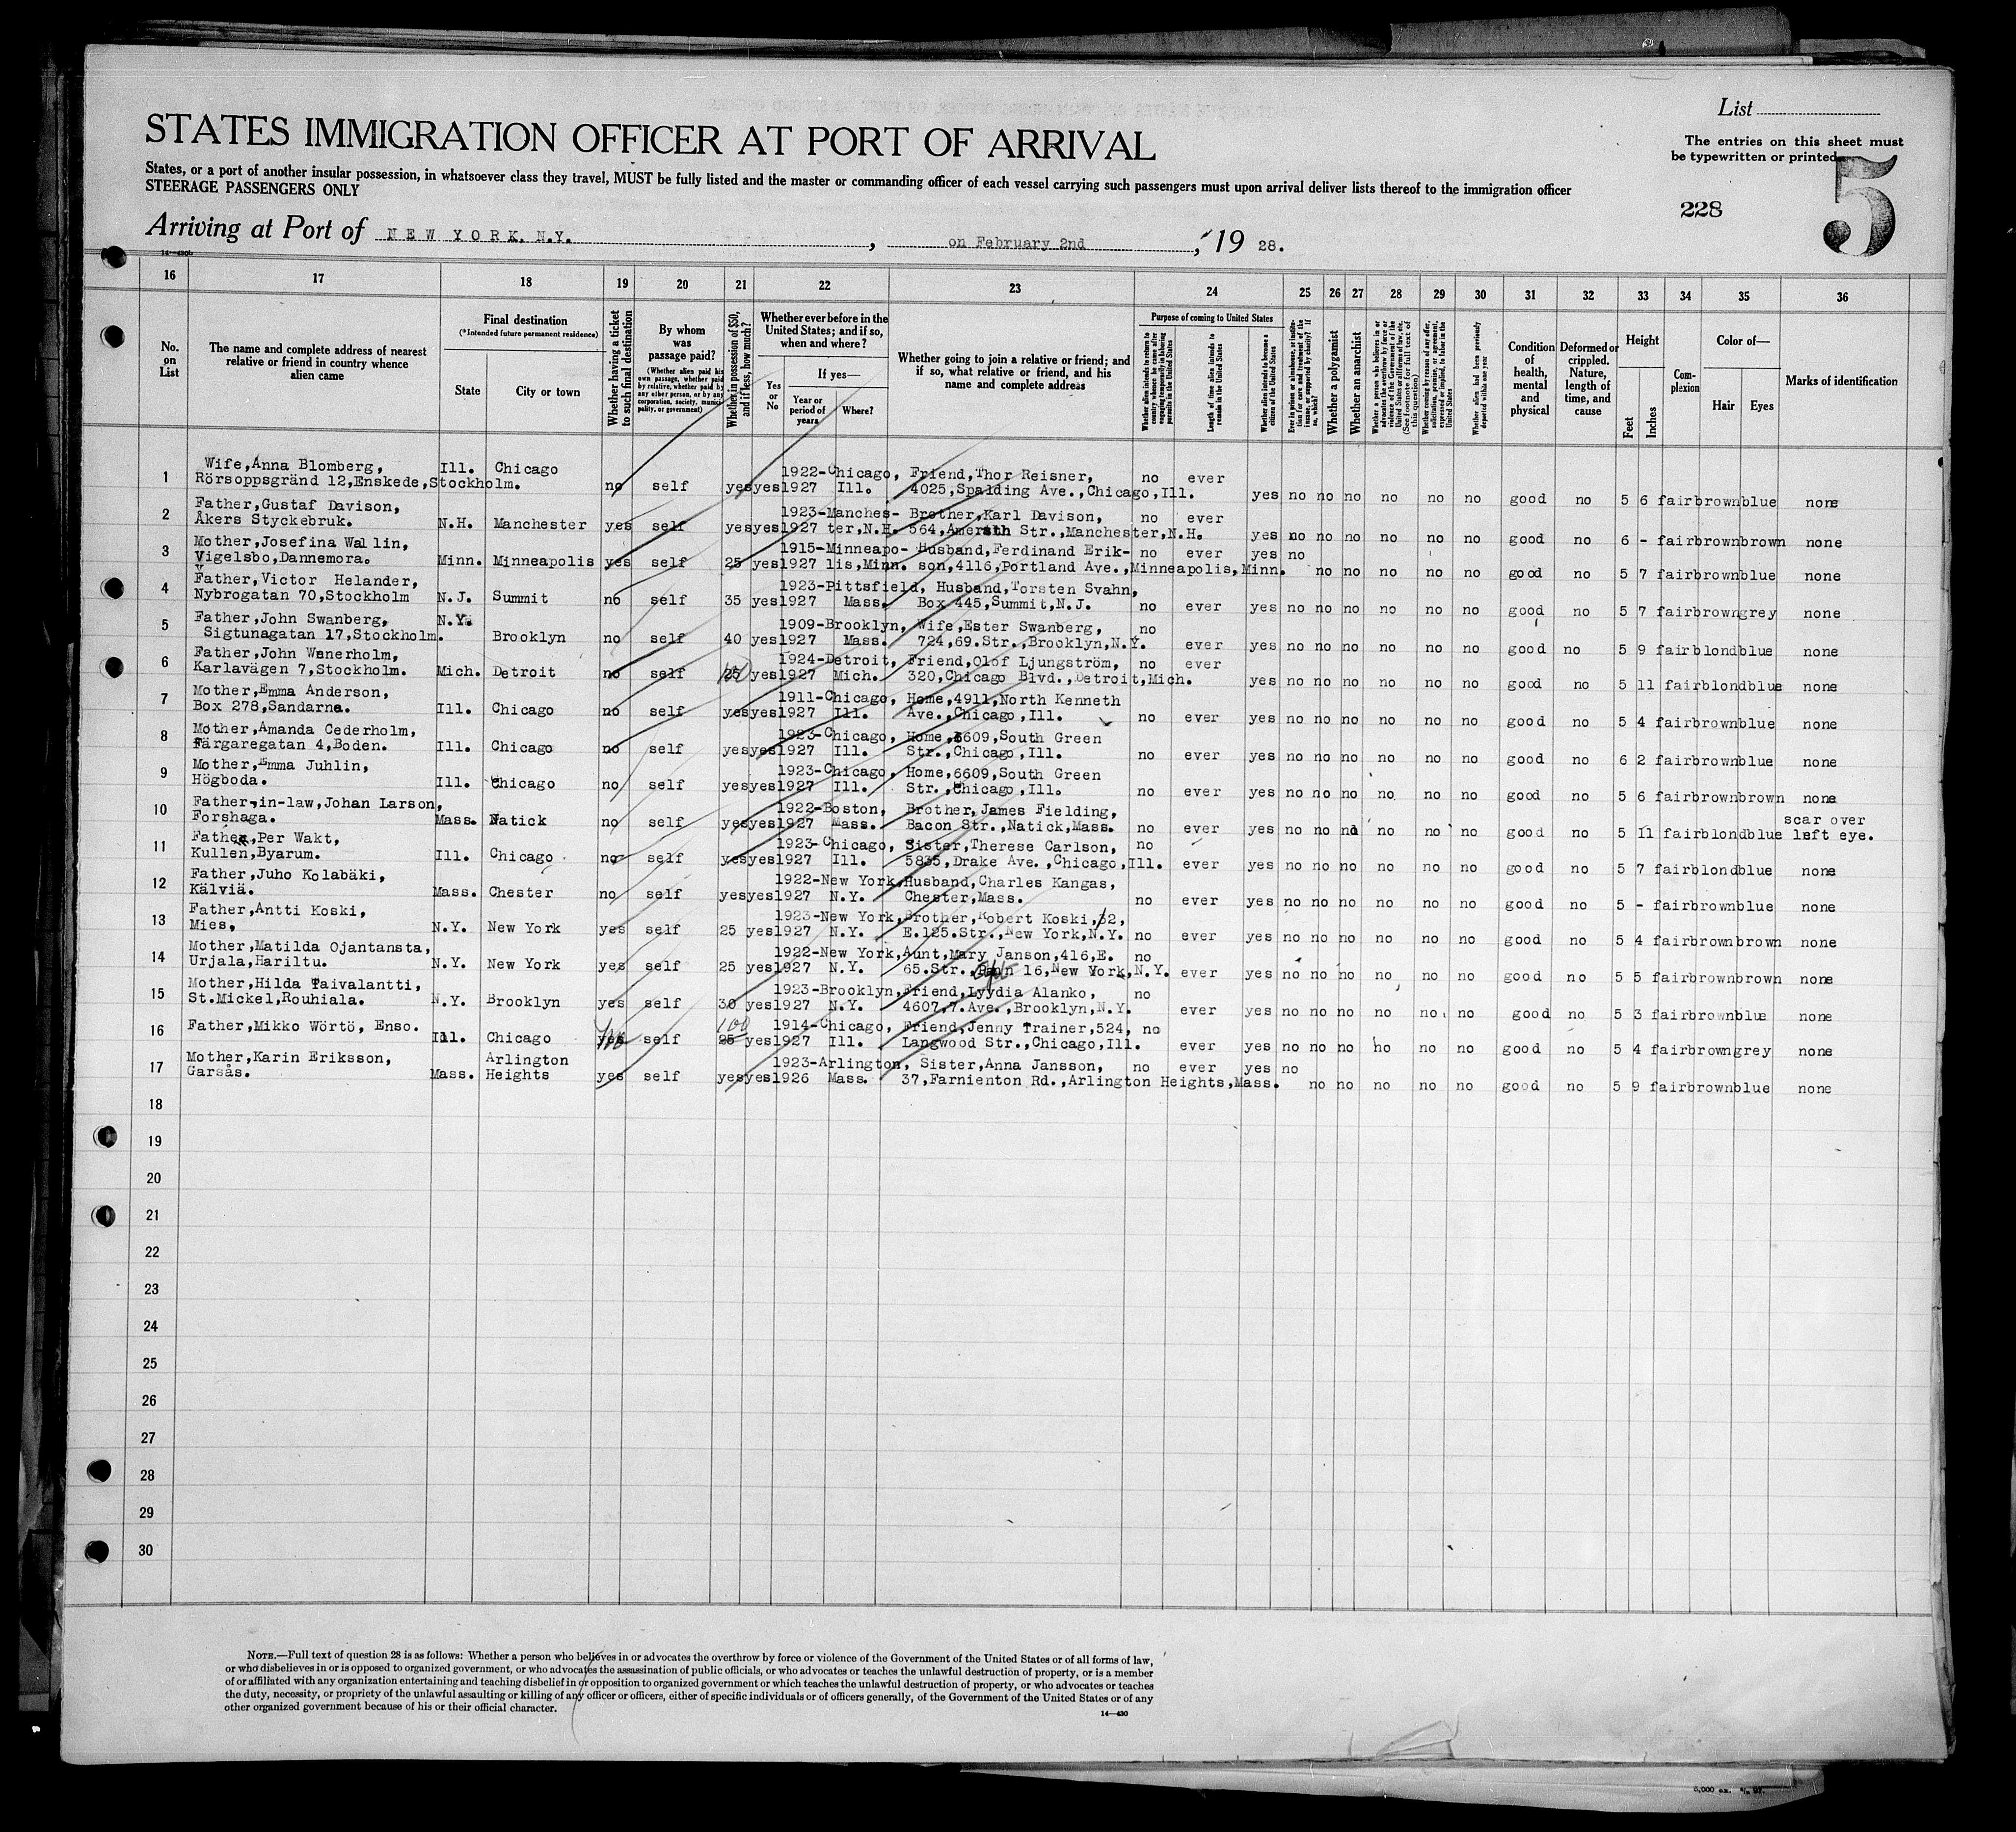 List
The entries on this sheet must
be typewritten or printed.
5
228
STATES IMMIGRATION OFFICER AT PORT OF ARRIVAL
States, or a port of another insular possession, in whatsoever class they travel, MUST be fully listed and the master or commanding officer of each vessel carrying such passengers must upon arrival deliver lists thereof to the immigration officer
STEERAGE PASSENGERS ONLY
Arriving at Port of NEW YORK, N.Y., on February 2nd, 19 28.
14—430b
16 17 18 19 20 21 22 23 24 25 26 27 28 29 30 31 32 33 34 35 36
No. on List
The name and complete address of nearest relative or friend in country whence alien came
Final destination
(*Intended future permanent residence)
State
City or town
Whether having a ticket to such final destination
By whom was passage paid?
(Whether alien paid his own passage, whether paid by relative, whether paid by any other person, or by any corporation, society, municipality, or government)
Whether in possession of $50, and if less, how much?
Whether ever before in the United States; and if so, when and where?
Yes or No
If yes—
Year or period of years
Where?
Whether going to join a relative or friend; and if so, what relative or friend, and his name and complete address
Purpose of coming to United States
Whether alien intends to return to country whence he came after engaging temporarily in laboring pursuits in the United States
Length of time alien intends to remain in the United States
Whether alien intends to become a citizen of the United States
Ever in prison or almshouse, or institution for care and treatment of the insane, or supported by charity? If so, which?
Whether a polygamist
Whether an anarchist
Whether a person who believes in or advocates the overthrow by force or violence of the Government of the United States or all forms of law, etc. (See footnote for full text of this question)
Whether coming by reason of any offer, solicitation, promise, or agreement, expressed or implied, to labor in the United States
Whether alien had been previously deported within one year
Condition of health, mental and physical
Deformed or crippled. Nature, length of time, and cause
Height
Feet
Inches
Complexion
Color of—
Hair
Eyes
Marks of identification
1 Wife, Anna Blomberg, Ill. Chicago 1922-Chicago, Friend, Thor Reisner, no ever
Rörsoppsgränd 12, Enskede, Stockholm. no self yes yes 1927 Ill. 4025, Spalding Ave., Chicago, Ill. yes no no no no no no good no 5 6 fair brown blue none
2 Father, Gustaf Davison, 1923-Manches- Brother, Karl Davison, no ever
Åkers Styckebruk. N.H. Manchester yes self yes yes 1927 ter, N.H. 564, Str., Manchester, N.H. yes no no no no no no good no 6 - fair brown brown none
3 Mother, Josefina Wallin, 1915-Minneapo- Husband, Ferdinand Erik- no ever yes no
Vigelsbo, Dannemora. Minn. Minneapolis yes self 25 yes 1927 lis, Minn. son, 4116, Portland Ave., Minneapolis, Minn. no no no no no good no 5 7 fair brown blue none
4 Father, Victor Helander, 1923-Pittsfield, Husband, Torsten Svahn,
Nybrogatan 70, Stockholm N.J. Summit no self 35 yes 1927 Mass. Box 445, Summit, N.J. no ever yes no no no no no no good no 5 7 fair brown grey none
5 Father, John Swanberg, N.Y. 1909-Brooklyn, Wife, Ester Swanberg, no
Sigtunagatan 17, Stockholm. Brooklyn no self 40 yes 1927 Mass. 724, 69. Str., Brooklyn, N.Y. ever yes no no no no no no good no 5 9 fair blond blue none
6 Father, John Wenerholm, 1924-Detroit, Friend, Olof Ljungström, no ever
Karlavägen 7, Stockholm. Mich. Detroit no self 25 100 yes 1927 Mich. 320, Chicago Blvd., Detroit, Mich. yes no no no no no no good no 5 11 fair blond blue none
7 Mother, Emma Anderson, 1911-Chicago, Home, 4911, North Kenneth
Box 278, Sandarne. Ill. Chicago no self yes yes 1927 Ill. Ave., Chicago, Ill. no ever yes no no no no no no good no 5 4 fair brown blue none
8 Mother, Amanda Cederholm, 1923-Chicago, Home, 6609, South Green
Färgaregatan 4, Boden. Ill. Chicago no self yes yes 1927 Ill. Str., Chicago, Ill. no ever yes no no no no no no good no 6 2 fair brown blue none
9 Mother, Emma Juhlin, 1923-Chicago, Home, 6609, South Green
Högboda. Ill. Chicago no self yes yes 1927 Ill. Str., Chicago, Ill. no ever yes no no no no no no good no 5 6 fair brown brown none
10 Father-in-law, Johan Larson, 1922-Boston, Brother, James Fielding, scar over
Forshaga. Mass. Natick no self yes yes 1927 Mass. Bacon Str., Natick, Mass. no ever yes no no no no no no good no 5 11 fair blond blue left eye.
11 Father, Per Wakt, 1923-Chicago, Sister, Therese Carlson, no
Kullen, Byarum. Ill. Chicago no self yes yes 1927 Ill. 5835, Drake Ave., Chicago, Ill. ever yes no no no no no no good no 5 7 fair blond blue none
12 Father, Juho Kolabäki, 1922-New York, Husband, Charles Kangas,
Kälviä. Mass. Chester no self yes yes 1927 N.Y. Chester, Mass. no ever yes no no no no no no good no 5 - fair brown blue none
13 Father, Antti Koski, 1923-New York, Brother, Robert Koski, 32,
Mies, N.Y. New York yes self 25 yes 1927 N.Y. E.125. Str., New York, N.Y. no ever yes no no no no no no good no 5 4 fair brown brown none
14 Mother, Matilda Ojantansta, 1922-New York, Aunt, Mary Janson, 416, E. no
Urjala, Hariltu. N.Y. New York yes self 25 yes 1927 N.Y. 65. Str., 16, New York, N.Y. ever yes no no no no no no good no 5 5 fair brown brown none
15 Mother, Hilda Taivalantti, 1923-Brooklyn, Friend, Lyydia Alanko, no
St. Mickel, Rouhiala. N.Y. Brooklyn yes self 30 yes 1927 N.Y. 4607, 7. Ave., Brooklyn, N.Y. ever yes no no no no no no good no 5 3 fair brown blue none
16 Father, Mikko Wörtö, Enso. 100 1914-Chicago, Friend, Jenny Trainer, 524, no
Ill. Chicago yes self 25 yes 1927 Ill. Langwood Str., Chicago, Ill. ever yes no no no no no no good no 5 4 fair brown grey none
17 Mother, Karin Eriksson, Arlington 1923-Arlington, Sister, Anna Jansson, no ever yes no
Garsås. Mass. Heights yes self yes yes 1926 Mass. 37, Farnienton Rd., Arlington Heights, Mass. no no no no no good no 5 9 fair brown blue none
18
19
20
21
22
23
24
25
26
27
28
29
30
NOTE.—Full text of question 28 is as follows: Whether a person who believes in or advocates the overthrow by force or violence of the Government of the United States or of all forms of law,
or who disbelieves in or is opposed to organized government, or who advocates the assassination of public officials, or who advocates or teaches the unlawful destruction of property, or is a member
of or affiliated with any organization entertaining and teaching disbelief in or opposition to organized government or which teaches the unlawful destruction of property, or who advocates or teaches
the duty, necessity, or propriety of the unlawful assaulting or killing of any officer or officers, either of specific individuals or of officers generally, of the Government of the United States or of any
other organized government because of his or their official character.
14—430